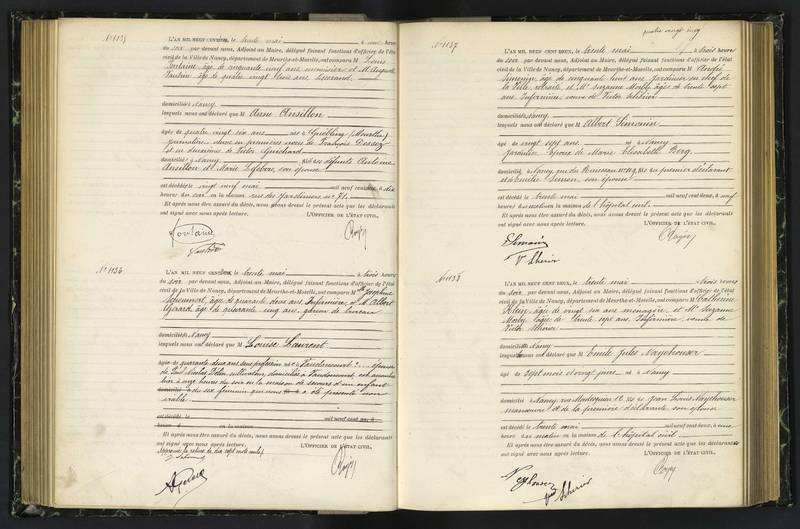 N° 1135
L'AN MIL NEUF CENT DEUX, le trente mai à une heure
du soir par devant nous, Adjoint au Maire, délégué faisant fonctions d'officier de l'état
civil de la Ville de Nancy, département de Meurthe-et-Moselle, ont comparu M Louis
Fontaine, âgé de cinquante neuf ans, et M Auguste
âgé de quatre vingt trois ans
domiciliés à Nancy
lesquels nous ont déclaré que M Anne Ansillon
âgée de quatre vingt six ans née à (Moselle)
veuve en premières noces de François
et en deuxièmes de Victor Guichard
domiciliée à Nancy, fille des défunts Antoine
Ansillon et Marie Lefebvre, son épouse
est décédée le vingt neuf mai mil neuf cent deux, à dix
heures du soir en la maison rue des Jardiniers n° 71
Et après nous être assuré du décès, nous avons dressé le présent acte que les déclarants
ont signé avec nous après lecture. L'OFFICIER DE L'ÉTAT CIVIL,
Fontaine
N° 1136
L'AN MIL NEUF CENT DEUX, le trente mai à trois heures
du soir, par devant nous, Adjoint au Maire, délégué faisant fonctions d'officier de l'état
civil de la Ville de Nancy, département de Meurthe-et-Moselle, ont comparu M Joséphine
âgée de quarante deux ans, Infirmière, et M Albert
âgé de quarante cinq ans, garçon de bureau
domiciliés à Nancy
lesquels nous ont déclaré que M Louise Laurent
âgée de quarante deux ans, sans profession née à Vandoncourt, épouse
de Paul Nicolas cultivateur, domiciliés à Vandoncourt, est accouchée
hier à onze heures du soir en la maison de secours d'un enfant
du sexe féminin qui nous a été présenté sans
vie
est décédé le mil neuf cent deux, à
heures en la maison
Et après nous être assuré du décès, nous avons dressé le présent acte que les déclarants
ont signé avec nous après lecture. L'OFFICIER DE L'ÉTAT CIVIL,
Approuvé la rature de dix sept mots nuls
quatre vingt neuf
N° 1137
L'AN MIL NEUF CENT DEUX, le trente mai à trois heures
du soir, par devant nous, Adjoint au Maire, délégué faisant fonctions d'officier de l'état
civil de la Ville de Nancy, département de Meurthe-et-Moselle, ont comparu M
Simonin, âgé de cinquante huit ans, Jardinier en chef de
la Ville, retraité, et Me Suzanne Morly, âgée de trente sept
ans, Infirmière, veuve de Victor
domiciliés à Nancy
lesquels nous ont déclaré que M Albert Simonin
âgé de vingt sept ans né à Nancy
Jardinier, époux de Marie Elisabeth Berg
domicilié à Nancy, rue du Ruisseau n° fils du premier déclarant
et d'Emélie Simon, son épouse
est décédé le trente mai mil neuf cent deux, à neuf
heures du matin en la maison de l'hôpital civil
Et après nous être assuré du décès, nous avons dressé le présent acte que les déclarants
ont signé avec nous après lecture. L'OFFICIER DE L'ÉTAT CIVIL,
Simonin
N° 1138
L'AN MIL NEUF CENT DEUX, le trente mai à trois heures
du soir, par devant nous, Adjoint au Maire, délégué faisant fonctions d'officier de l'état
civil de la Ville de Nancy, département de Meurthe-et-Moselle, ont comparu M Catherine
Klein, âgée de vingt six ans, ménagère, et Me Suzanne
Morly, âgée de trente sept ans, Infirmière, veuve de
domiciliées à Nancy
lesquelles nous ont déclaré que M Emile Jules
âgé de sept mois et vingt jours né à Nancy
domicilié à Nancy, rue fils de Jean Louis
manœuvre et de la première déclarante son épouse
est décédé le trente mai mil neuf cent deux, à une
heure du matin en la maison de l'hôpital civil
Et après nous être assuré du décès, nous avons dressé le présent acte que les déclarants
ont signé avec nous après lecture. L'OFFICIER DE L'ÉTAT CIVIL,